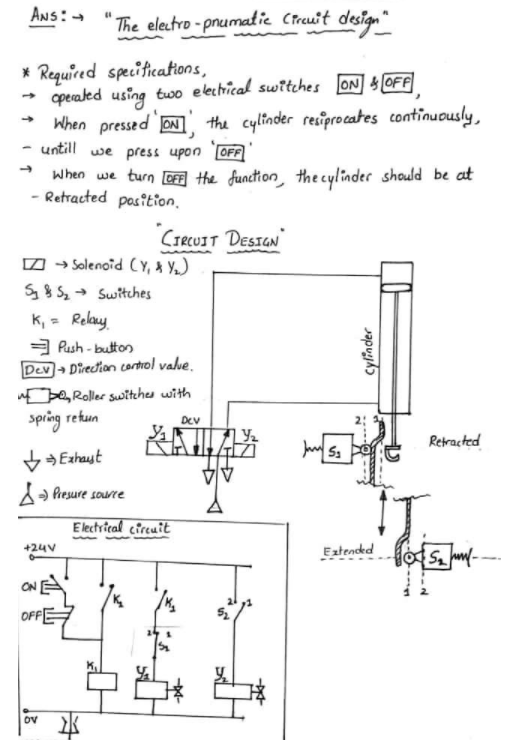 ANS: → "The electro-pnumatic circuit design"
* Required specifications,
→ operated using two electrical switches ON & OFF,
→ When pressed 'ON', the cylinder resiprocates continuously,
- untill we press upon 'OFF'
→ When we turn OFF the function, the cylinder should be at
- Retracted position.
"CIRCUIT DESIGN"
→ Solenoid (Y1 & Y2)
S1 & S2 → Switches
K1 = Relay
Push-button
DCV → Direction control value.
Roller switches with
spring return
⇒ Exhaust
⇒ Presure source
Cylinder
DCV
Y1
Y2
2 1
S1
Retracted
Extended
S2
1 2
Electrical circuit
+24V
ON
OFF
K1
K1
2 1
S1
2 1
S2
K1
Y1
Y2
0V